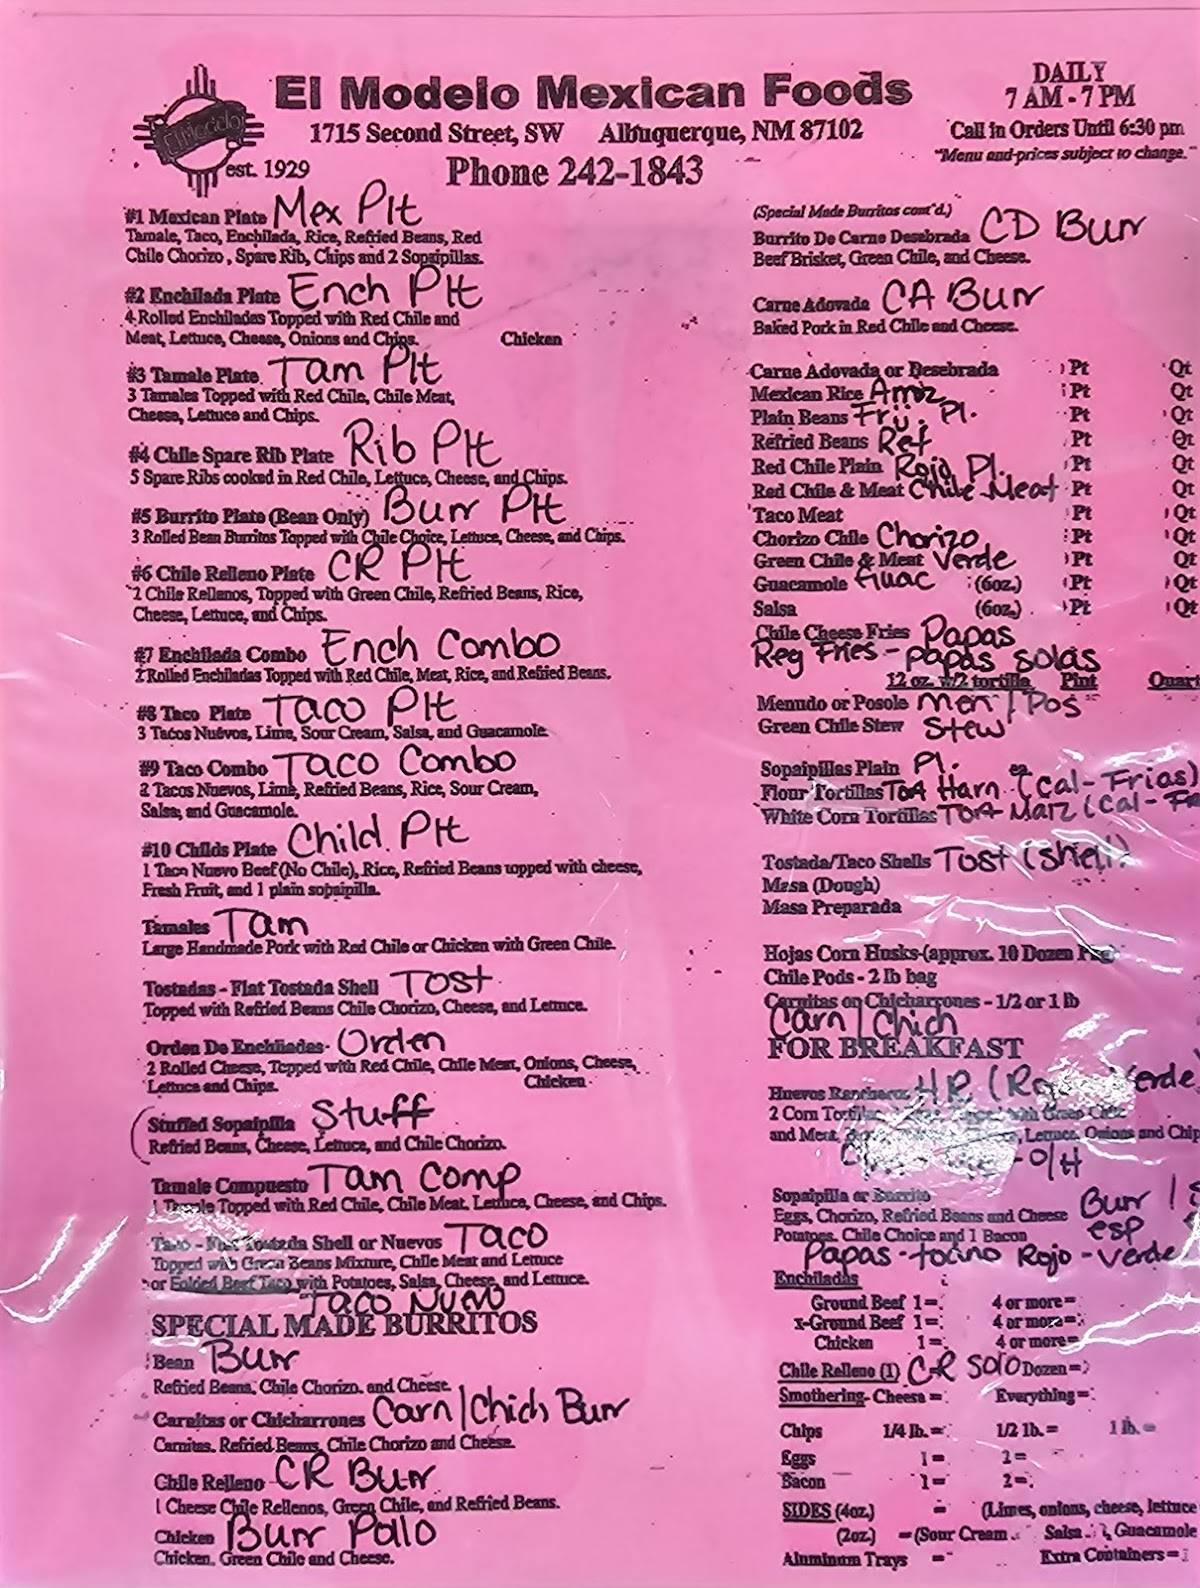 El Modelo
est. 1929
El Modelo Mexican Foods
1715 Second Street, SW Albuquerque, NM 87102
Phone 242-1843
DAILY
7 AM - 7 PM
Call in Orders Until 6:30 pm
"Menu and prices subject to change."
#1 Mexican Plate Mex Plt
Tamale, Taco, Enchilada, Rice, Refried Beans, Red
Chile Chorizo, Spare Rib, Chips and 2 Sopaipillas.
#2 Enchilada Plate Ench Plt
4 Rolled Enchiladas Topped with Red Chile and
Meat, Lettuce, Cheese, Onions and Chips. Chicken
#3 Tamale Plate Tam Plt
3 Tamales Topped with Red Chile, Chile Meat,
Cheese, Lettuce and Chips.
#4 Chile Spare Rib Plate Rib Plt
5 Spare Ribs cooked in Red Chile, Lettuce, Cheese, and Chips.
#5 Burrito Plate (Bean Only) Burr Plt
3 Rolled Bean Burritos Topped with Chile Choice, Lettuce, Cheese, and Chips.
#6 Chile Relleno Plate CR Plt
2 Chile Rellenos, Topped with Green Chile, Refried Beans, Rice,
Cheese, Lettuce, and Chips.
#7 Enchilada Combo Ench Combo
2 Rolled Enchiladas Topped with Red Chile, Meat, Rice, and Refried Beans.
#8 Taco Plate Taco Plt
3 Tacos Nuevos, Lime, Sour Cream, Salsa, and Guacamole.
#9 Taco Combo Taco Combo
2 Tacos Nuevos, Lime, Refried Beans, Rice, Sour Cream,
Salsa, and Guacamole.
#10 Childs Plate Child. Plt
1 Taco Nuevo Beef (No Chile), Rice, Refried Beans topped with cheese,
Fresh Fruit, and 1 plain sopaipilla.
Tamales Tam
Large Handmade Pork with Red Chile or Chicken with Green Chile.
Tostadas - Flat Tostada Shell Tost
Topped with Refried Beans Chile Chorizo, Cheese, and Lettuce.
Orden De Enchiladas- Orden
2 Rolled Cheese, Topped with Red Chile, Chile Meat, Onions, Cheese,
Lettuce and Chips. Chicken
Stuffed Sopaipilla Stuff
Refried Beans, Cheese, Lettuce, and Chile Chorizo.
Tamale Compuesto Tam Comp
1 Tamale Topped with Red Chile, Chile Meat, Lettuce, Cheese, and Chips.
Taco - Flat Tostada Shell or Nuevos Taco
Topped with Green Beans Mixture, Chile Meat and Lettuce
or Folded Beef Taco with Potatoes, Salsa, Cheese, and Lettuce.
Taco Nuvo
SPECIAL MADE BURRITOS
Bean Burr
Refried Beans, Chile Chorizo, and Cheese
Carnitas or Chicharrones Carn/Chich Burr
Carnitas, Refried Beans, Chile Chorizo and Cheese.
Chile Relleno CR Burr
1 Cheese Chile Rellenos, Green Chile, and Refried Beans.
Chicken Burr Pollo
Chicken, Green Chile and Cheese.
(Special Made Burritos cont'd.)
Burrito De Carne Desebrada CD Burr
Beef Brisket, Green Chile, and Cheese.
Carne Adovada CA Burr
Baked Pork in Red Chile and Cheese.
Carne Adovada or Desebrada Pt Qt
Mexican Rice Arroz Pt Qt
Plain Beans Frij. Pl. Pt Qt
Refried Beans Ref Pt Qt
Red Chile Plain Rojo Pl. Pt Qt
Red Chile & Meat Chile Meat Pt Qt
Taco Meat Pt Qt
Chorizo Chile Chorizo Pt Qt
Green Chile & Meat Verde Pt Qt
Guacamole Guac (6oz.) Pt Qt
Salsa (6oz.) Pt Qt
Chile Cheese Fries Papas
Reg Fries - papas solas
12 oz. w/2 tortilla Pint Quart
Menudo or Posole Men / Pos
Green Chile Stew Stew
Sopaipillas Plain Pl.
Flour Tortillas Tor Harn (Cal - Frias)
White Corn Tortillas Tor Maiz (Cal -
Tostada/Taco Shells Tost (shell)
Masa (Dough)
Masa Preparada
Hojas Corn Husks-(approx. 10 Dozen
Chile Pods - 2 lb bag
Carnitas or Chicharrones - 1/2 or 1 lb
Carn / Chich
FOR BREAKFAST
Huevos Rancheros HR (Rojo Verde
2 Corn Tortillas, with Green Chile
and Meat, Lettuce, Onions and Chip
-O/H
Sopaipilla or Burrito Burr /
Eggs, Chorizo, Refried Beans and Cheese
Potatoes, Chile Choice and 1 Bacon esp
Papas - tocino Rojo - Verde
Enchiladas
Ground Beef 1= 4 or more=
x-Ground Beef 1= 4 or more=
Chicken 1= 4 or more=
Chile Relleno (1) CR Solo Dozen=
Smothering- Cheese = Everything=
Chips 1/4 lb. = 1/2 lb. = 1 lb. =
Eggs 1= 2=
Bacon 1= 2=
SIDES (4oz.) = (Limes, onions, cheese, lettuce
(2oz.) =(Sour Cream Salsa, Guacamole
Aluminum Trays = Extra Containers=